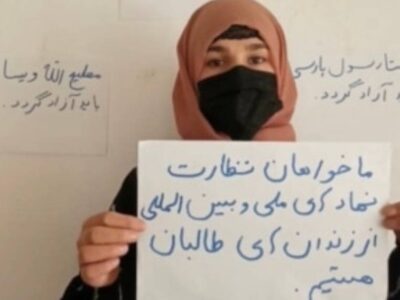 مطیع الله ویسا
باید آزاد گردد.
رسول پارسی
آزاد گردد.
ما خواهان نظارت
نهاد های ملی و بین المللی
از زندان های طالبان
هستیم.